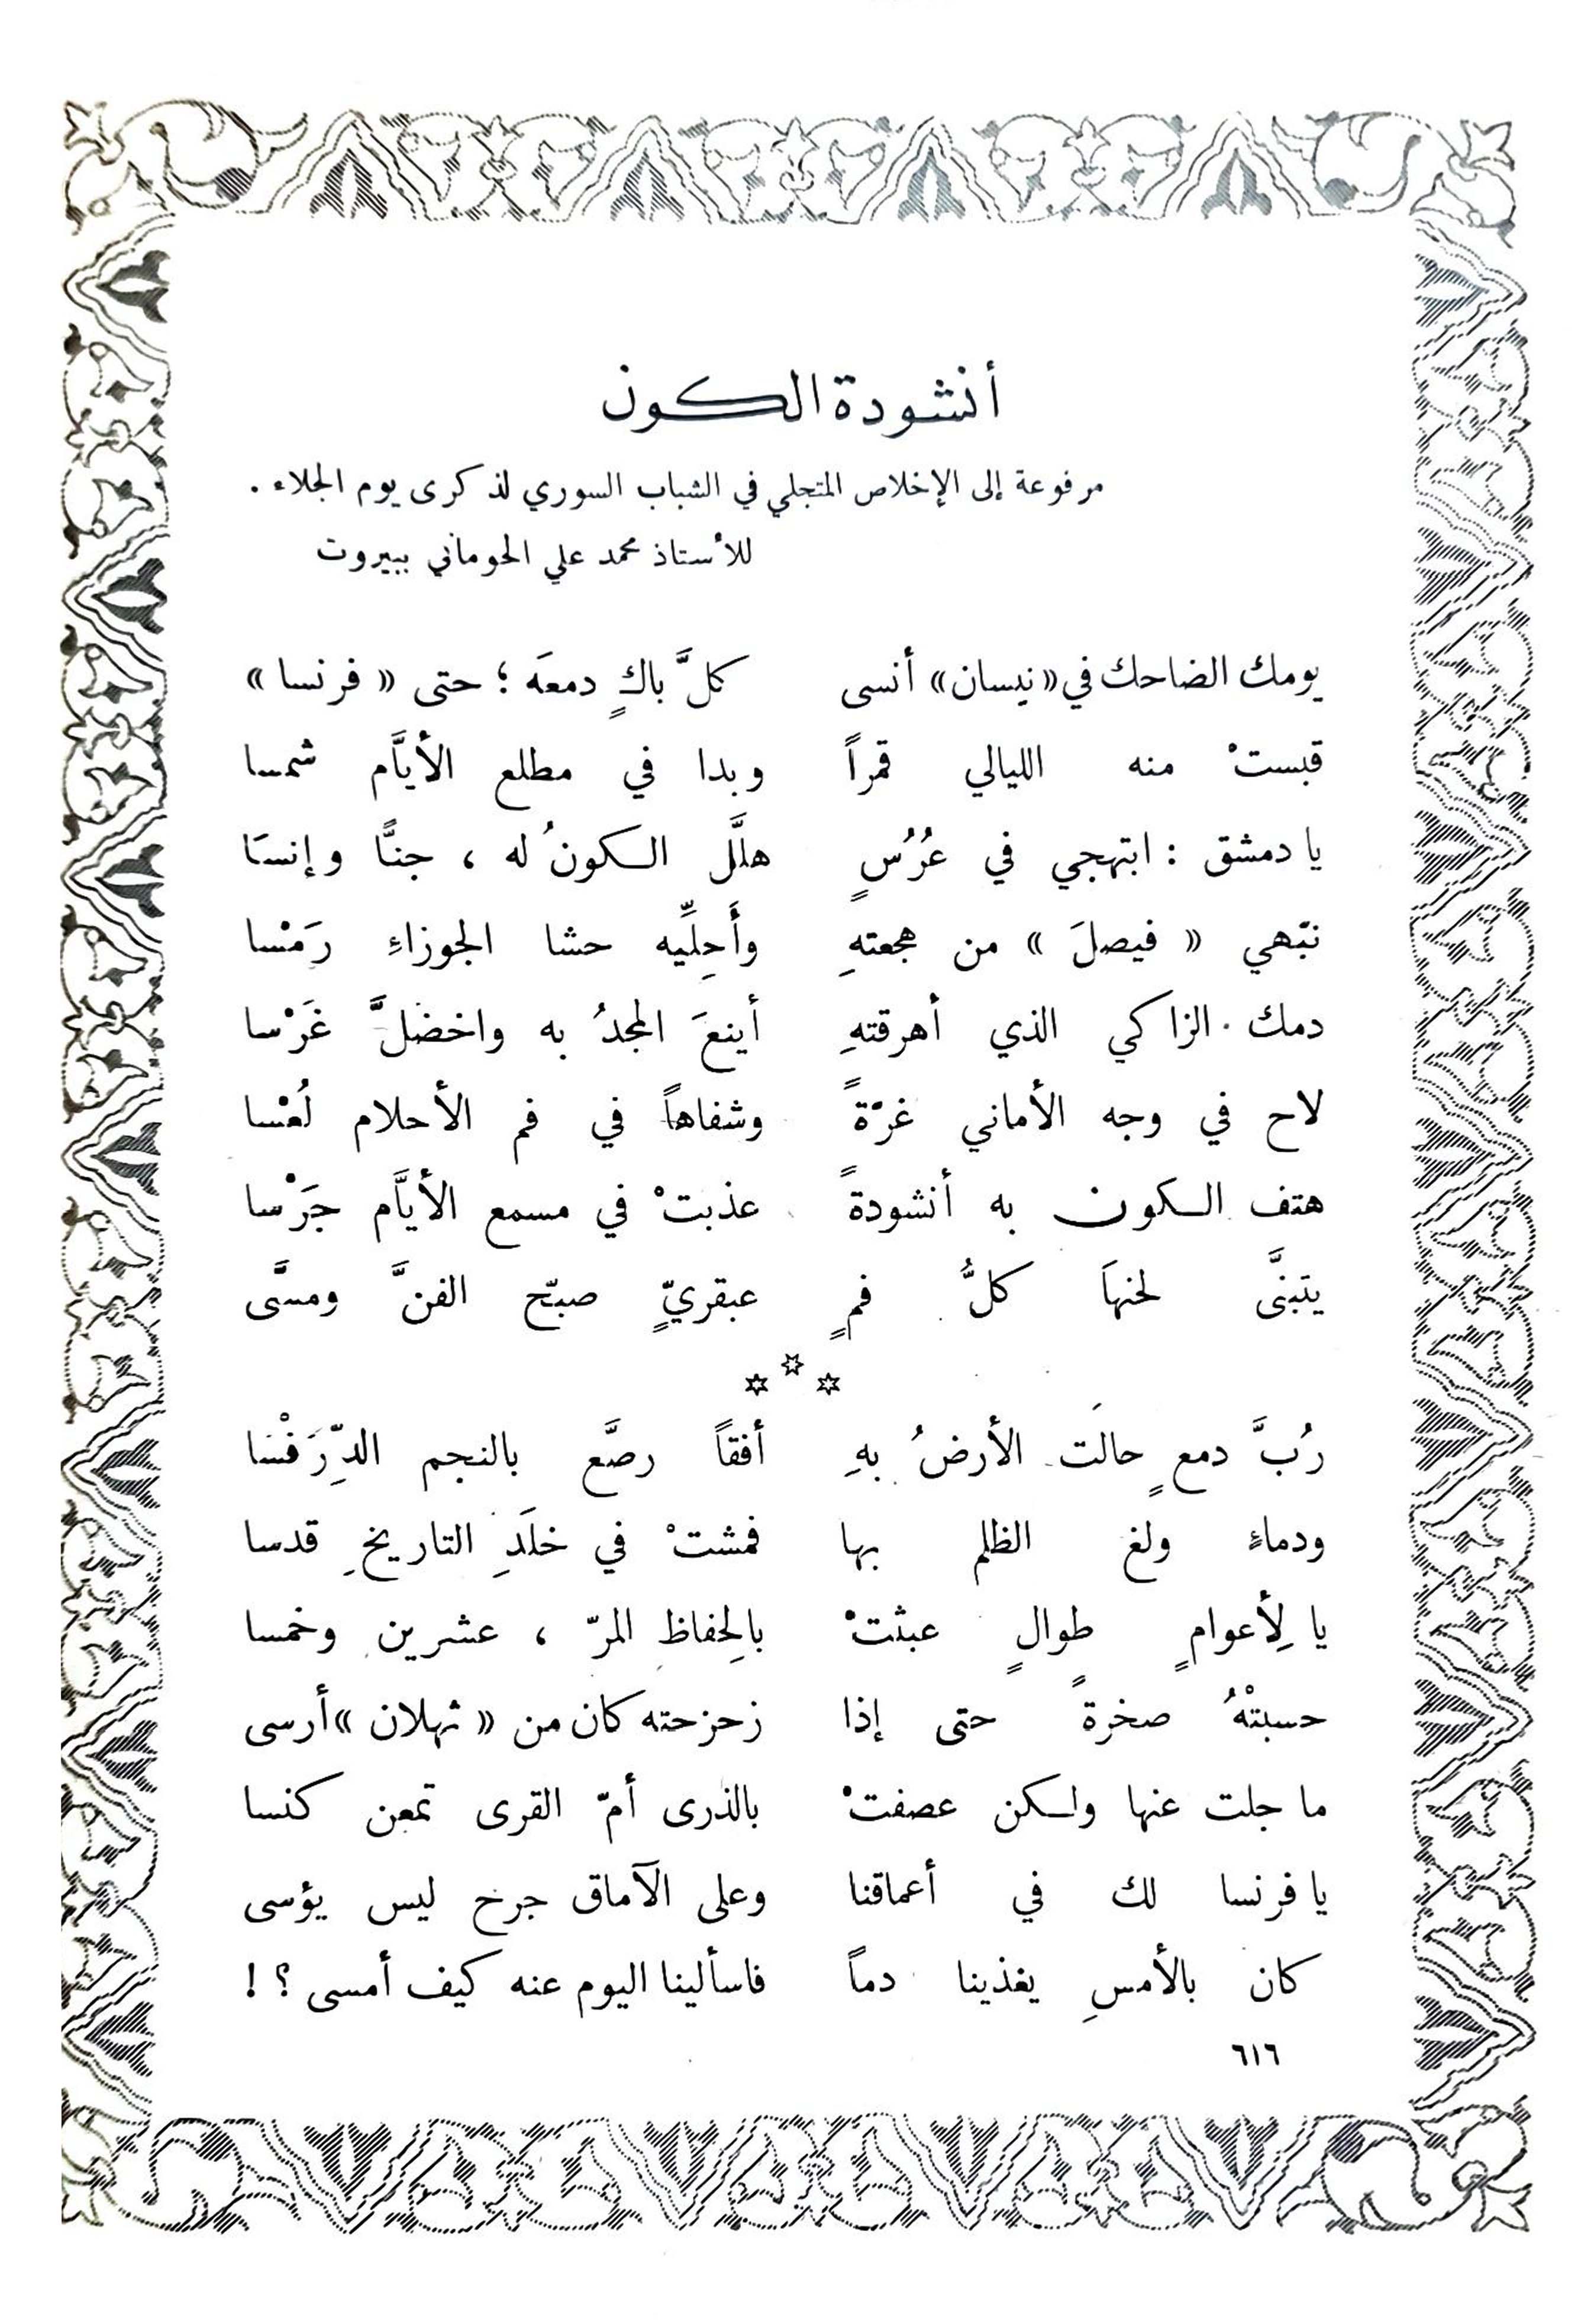 أنشودة الكون
مرفوعة إلى الإخلاص المتجلي في الشباب السوري لذكرى يوم الجلاء .
للأستاذ محمد علي الحوماني ببيروت
يومك الضاحك في « نيسان » أنسى كلَّ باكٍ دمعَه ؛ حتى « فرنسا »
قبستْ منه الليالي قمراً وبدا في مطلع الأيَّام شمسا
يا دمشق : ابتهجي في عُرُسٍ هلَّل الكونُ له ، جنًّا وإنسَا
نبّهي « فيصلَ » من هجعتهِ وأَحِلِّيه حشا الجوزاءِ رَمْسا
دمك الزاكي الذي أهرقتهِ أينعَ المجدُ به واخضلَّ غَرْسا
لاح في وجه الأماني غرّةً وشفاهاً في فم الأحلام لُعْسا
هتف الكون به أنشودةً عذبتْ في مسمع الأيَّام جَرْسا
يتبنَّى لحنهاَ كلُّ فمٍ عبقريٍّ صبّح الفنَّ ومسَّى
رُبَّ دمعٍ حالَت الأرضُ بهِ أفقاً رصَّع بالنجم الدِّرَفْسا
ودماءٍ ولغ الظلم بها فمشتْ في خلَدِ التاريخِ قدسا
يا لِأعوامٍ طوالٍ عبثتْ بالِحفاظ المرّ ، عشرين وخمسا
حسبتْهُ صخرةً حتى إذا زحزحته كان من « ثهلان » أرسى
ما جلت عنها ولكن عصفتْ بالذرى أمّ القرى تمعن كنسا
يا فرنسا لك في أعماقنا وعلى الآماق جرح ليس يؤسى
كان بالأمسِ يغذينا دماً فاسألينا اليوم عنه كيف أمسى ؟ !
٦١٦